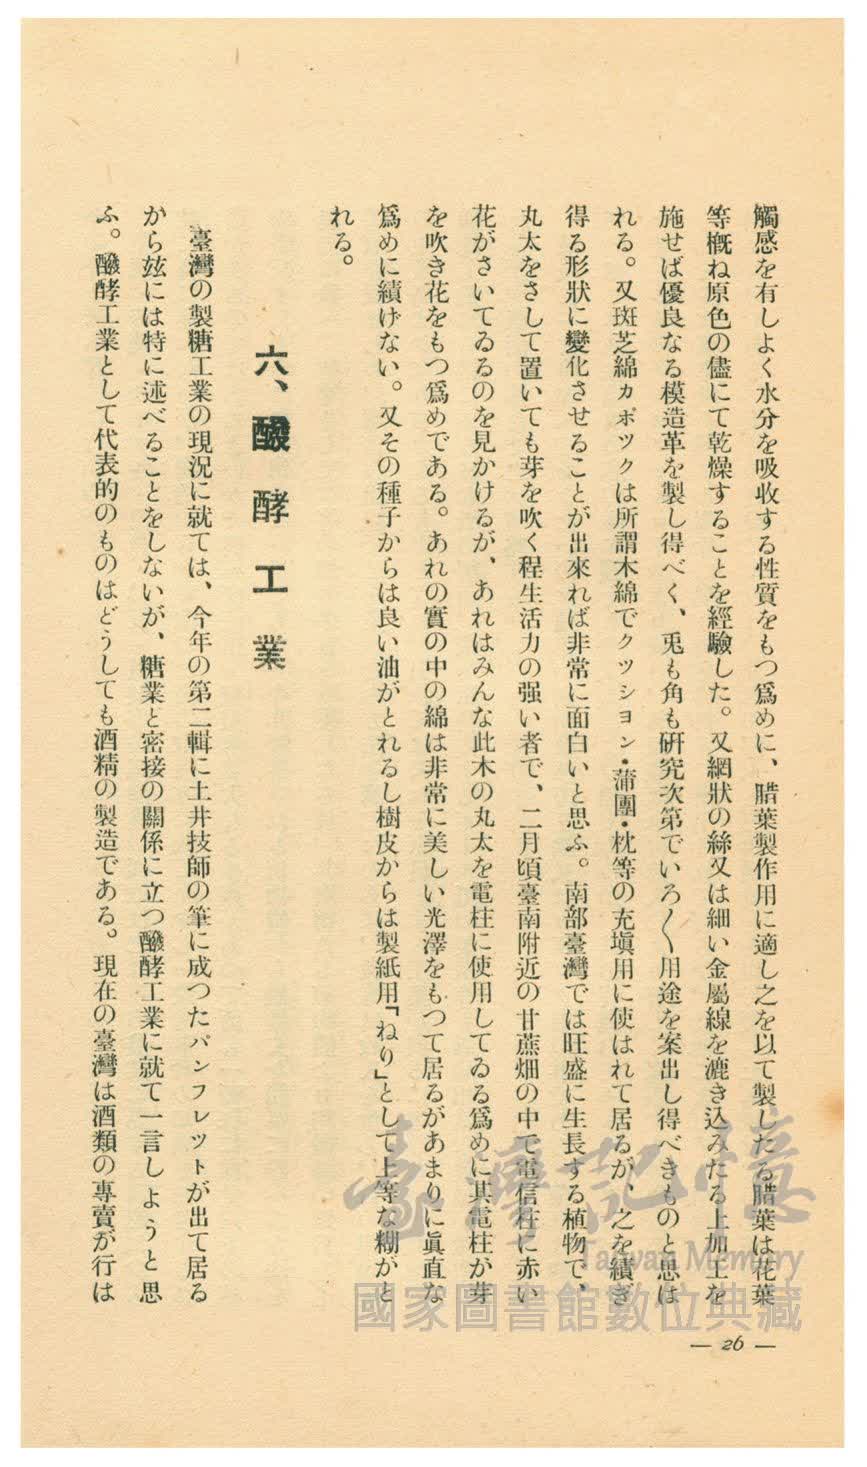 觸感を有しよく水分を吸收する性質をもつ爲めに、腊葉製作用に適し之を以て製したる腊葉は花葉
等槪ね原色の儘にて乾燥することを經驗した。又網狀の絲又は細い金屬線を漉き込みたる上加工を
施せば優良なる模造革を製し得べく、兎も角も硏究次第でいろ〳〵用途を案出し得べきものと思は
れる。又斑芝綿カポツクは所謂木綿でクツシヨン・蒲團・枕等の充塡用に使はれて居るが、之を績ぎ
得る形狀に變化させることが出來れば非常に面白いと思ふ。南部臺灣では旺盛に生長する植物で、
丸太をさして置いても芽を吹く程生活力の强い者で、二月頃臺南附近の甘蔗畑の中で電信柱に赤い
花がさいてゐるのを見かけるが、あれはみんな此木の丸太を電柱に使用してゐる爲めに其電柱が芽
を吹き花をもつ爲めである。あれの實の中の綿は非常に美しい光澤をもつて居るがあまりに眞直な
爲めに績けない。又その種子からは良い油がとれるし樹皮からは製紙用「ねり」として上等な糊がと
れる。
六、醱酵工業
臺灣の製糖工業の現況に就ては、今年の第二輯に土井技師の筆に成つたパンフレツトが出て居る
から玆には特に述べることをしないが、糖業と密接の關係に立つ醱酵工業に就て一言しようと思
ふ。醱酵工業として代表的のものはどうしても酒精の製造である。現在の臺灣は酒類の專賣が行は
— 26 —
臺灣記憶
Taiwan Memory
國家圖書館數位典藏